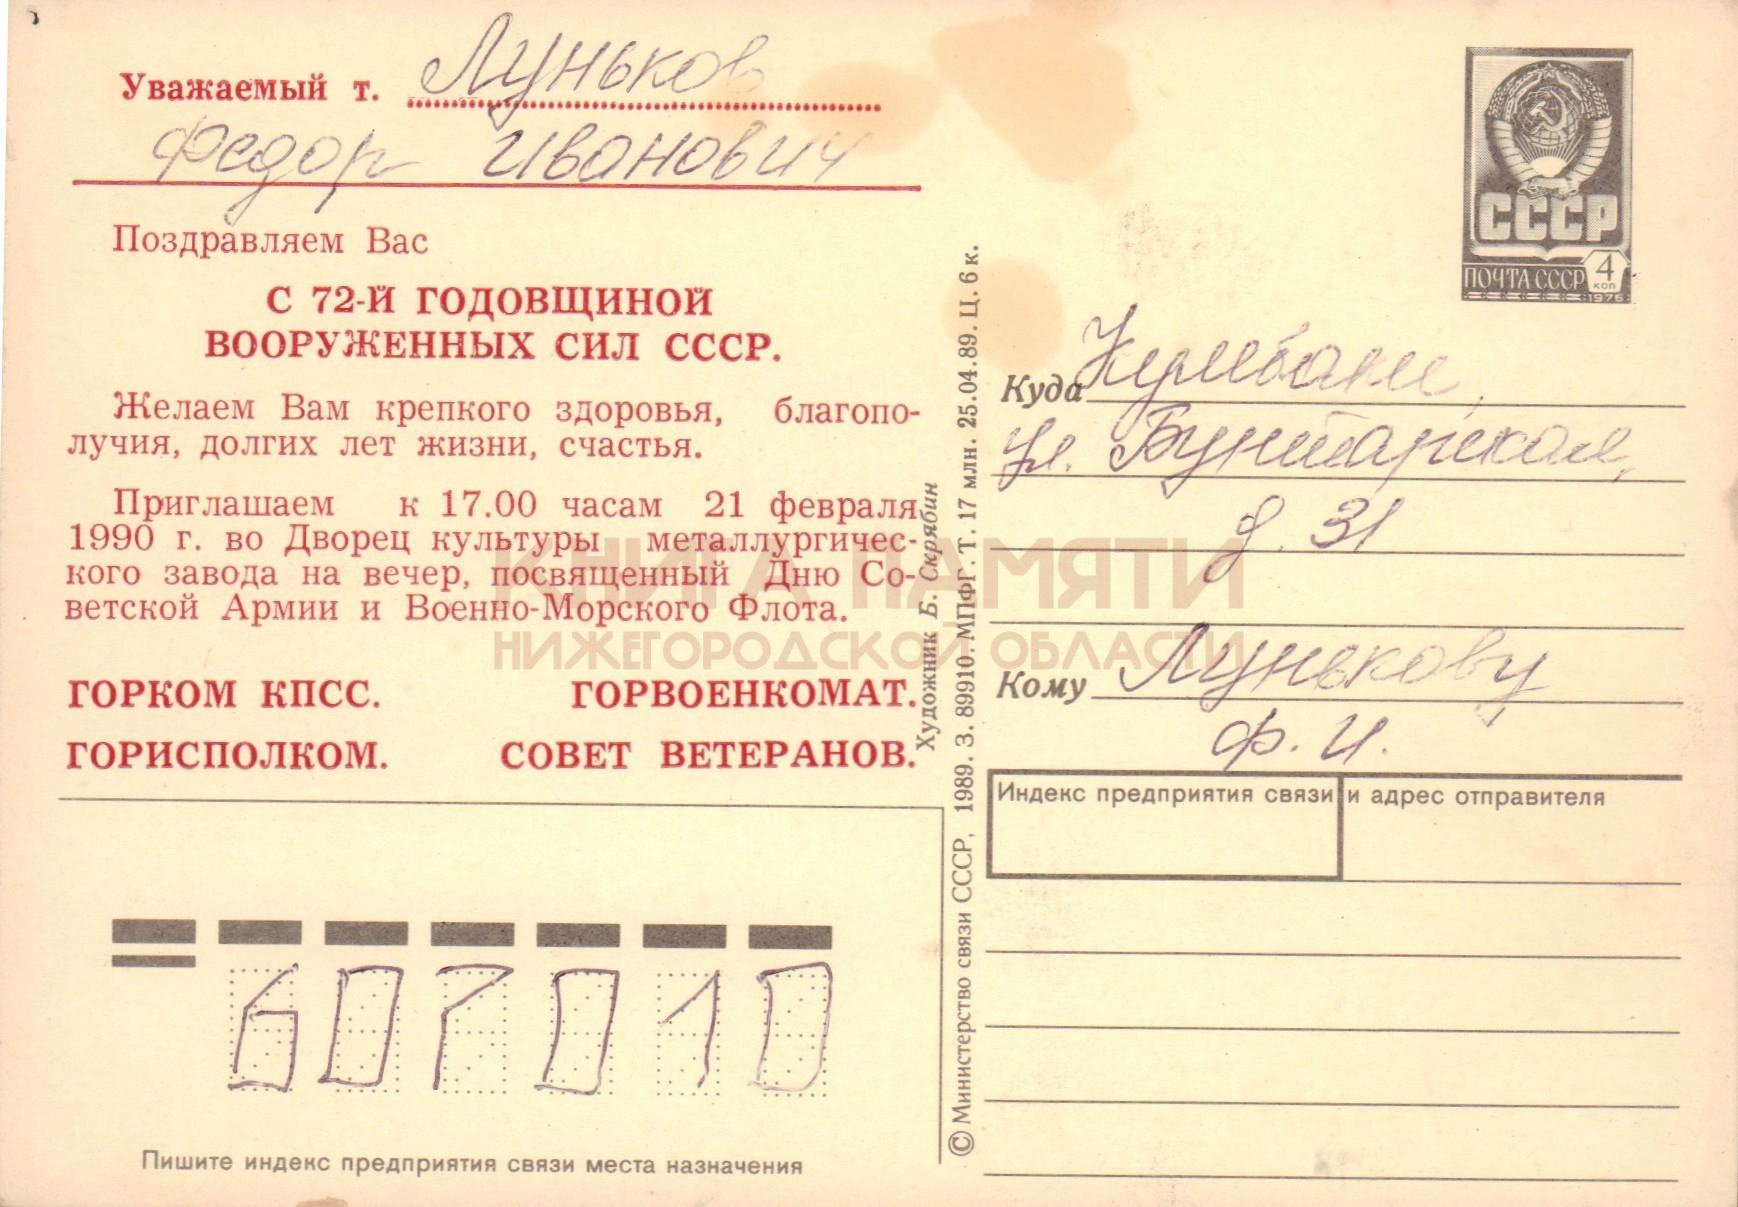 Уважаемый т. Луньков
Федор Иванович
Поздравляем Вас
С 72-Й ГОДОВЩИНОЙ
ВООРУЖЕННЫХ СИЛ СССР.
Желаем Вам крепкого здоровья, благопо-
лучия, долгих лет жизни, счастья.
Приглашаем к 17.00 часам 21 февраля
1990 г. во Дворец культуры металлургичес-
кого завода на вечер, посвященный Дню Со-
ветской Армии и Военно-Морского Флота.
ГОРКОМ КПСС. ГОРВОЕНКОМАТ.
ГОРИСПОЛКОМ. СОВЕТ ВЕТЕРАНОВ.
607010
Пишите индекс предприятия связи места назначения
Художник Б. Скрябин
© Министерство связи СССР, 1989. З. 89910. МПФГ. Т. 17 млн. 25.04.89. Ц. 6 к.
СССР
ПОЧТА СССР 4 КОП
1976
Куда
ул. Бунтарская,
д. 31
Кому Лунькову
Ф. И.
Индекс предприятия связи и адрес отправителя
КНИГА ПАМЯТИ
НИЖЕГОРОДСКОЙ ОБЛАСТИ